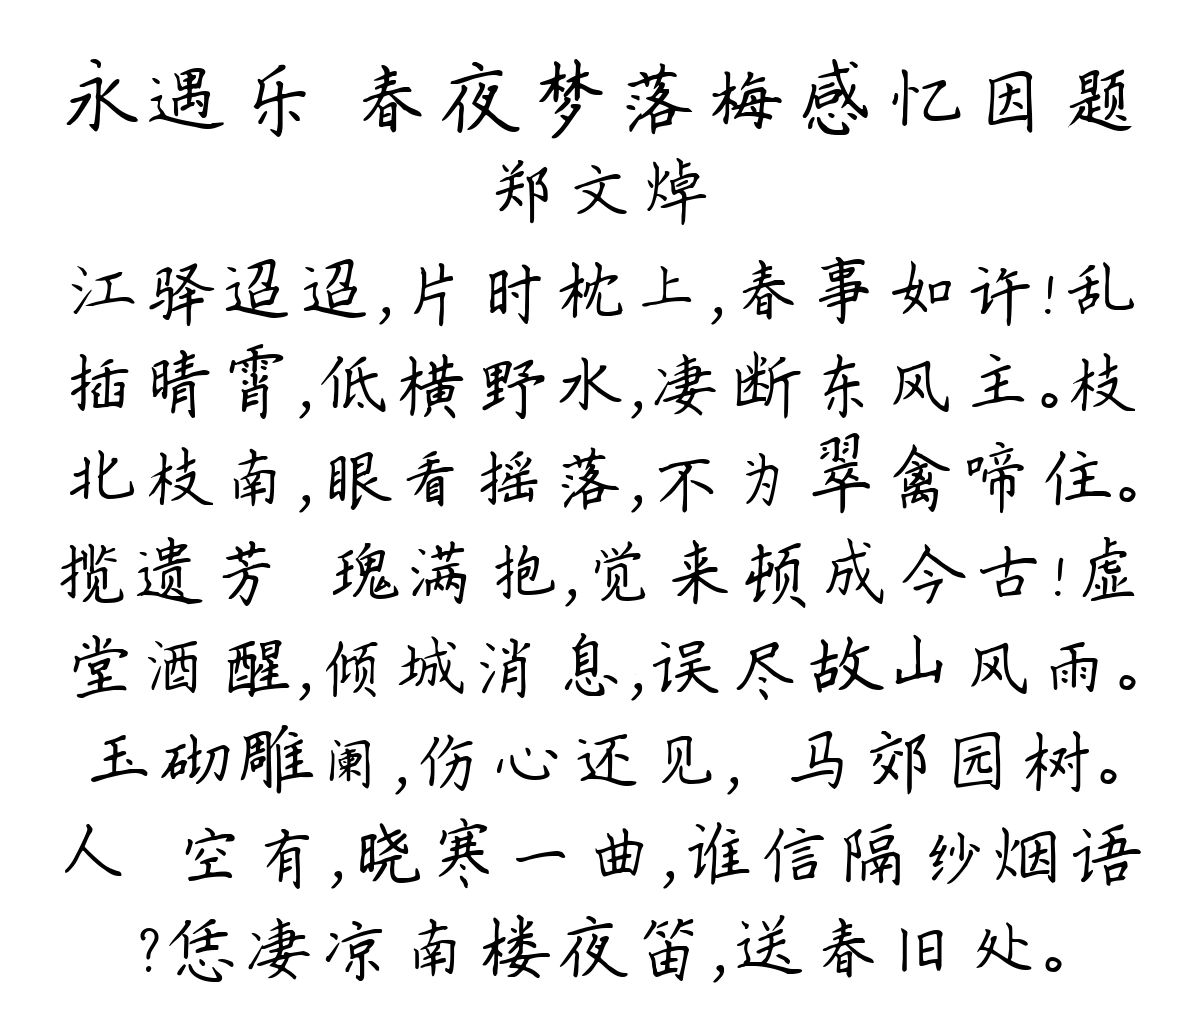 永遇乐 春夜梦落梅感忆因题
郑文焯
江驿迢迢,片时枕上,春事如许!乱
插晴霄,低横野水,凄断东风主。枝
北枝南,眼看摇落,不为翠禽啼住。
揽遗芳 瑰满抱,觉来顿成今古!虚
堂酒醒,倾城消息,误尽故山风雨。
玉砌雕阑,伤心还见, 马郊园树。
人 空有,晓寒一曲,谁信隔纱烟语
?恁凄凉南楼夜笛,送春旧处。